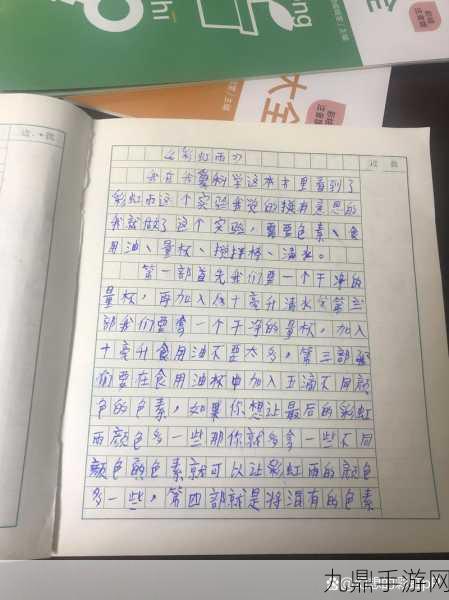 ng
shi
全
大全
边·批
边 批
《彩虹雨》
我在我爱科学这本书里看到了
彩虹雨这个实验我觉的挺有意思的
我就做了这个实验,需要色素、食
用油、量杯、搅拌棒、清水。
第一部首先我们要一个干净的
量杯,再加入八十毫升清水
部我们要拿一个干净的量杯,加入
十毫升食用油不要太多,第三部
们要在食用油杯中加入五滴不同颜
色的色素,如果你想让最后的彩虹
雨颜色多一些那你就多拿一些不同
颜色的色素就可以让彩虹雨的颜色
多一些,第四部就是将混有的色素
九鼎手游网